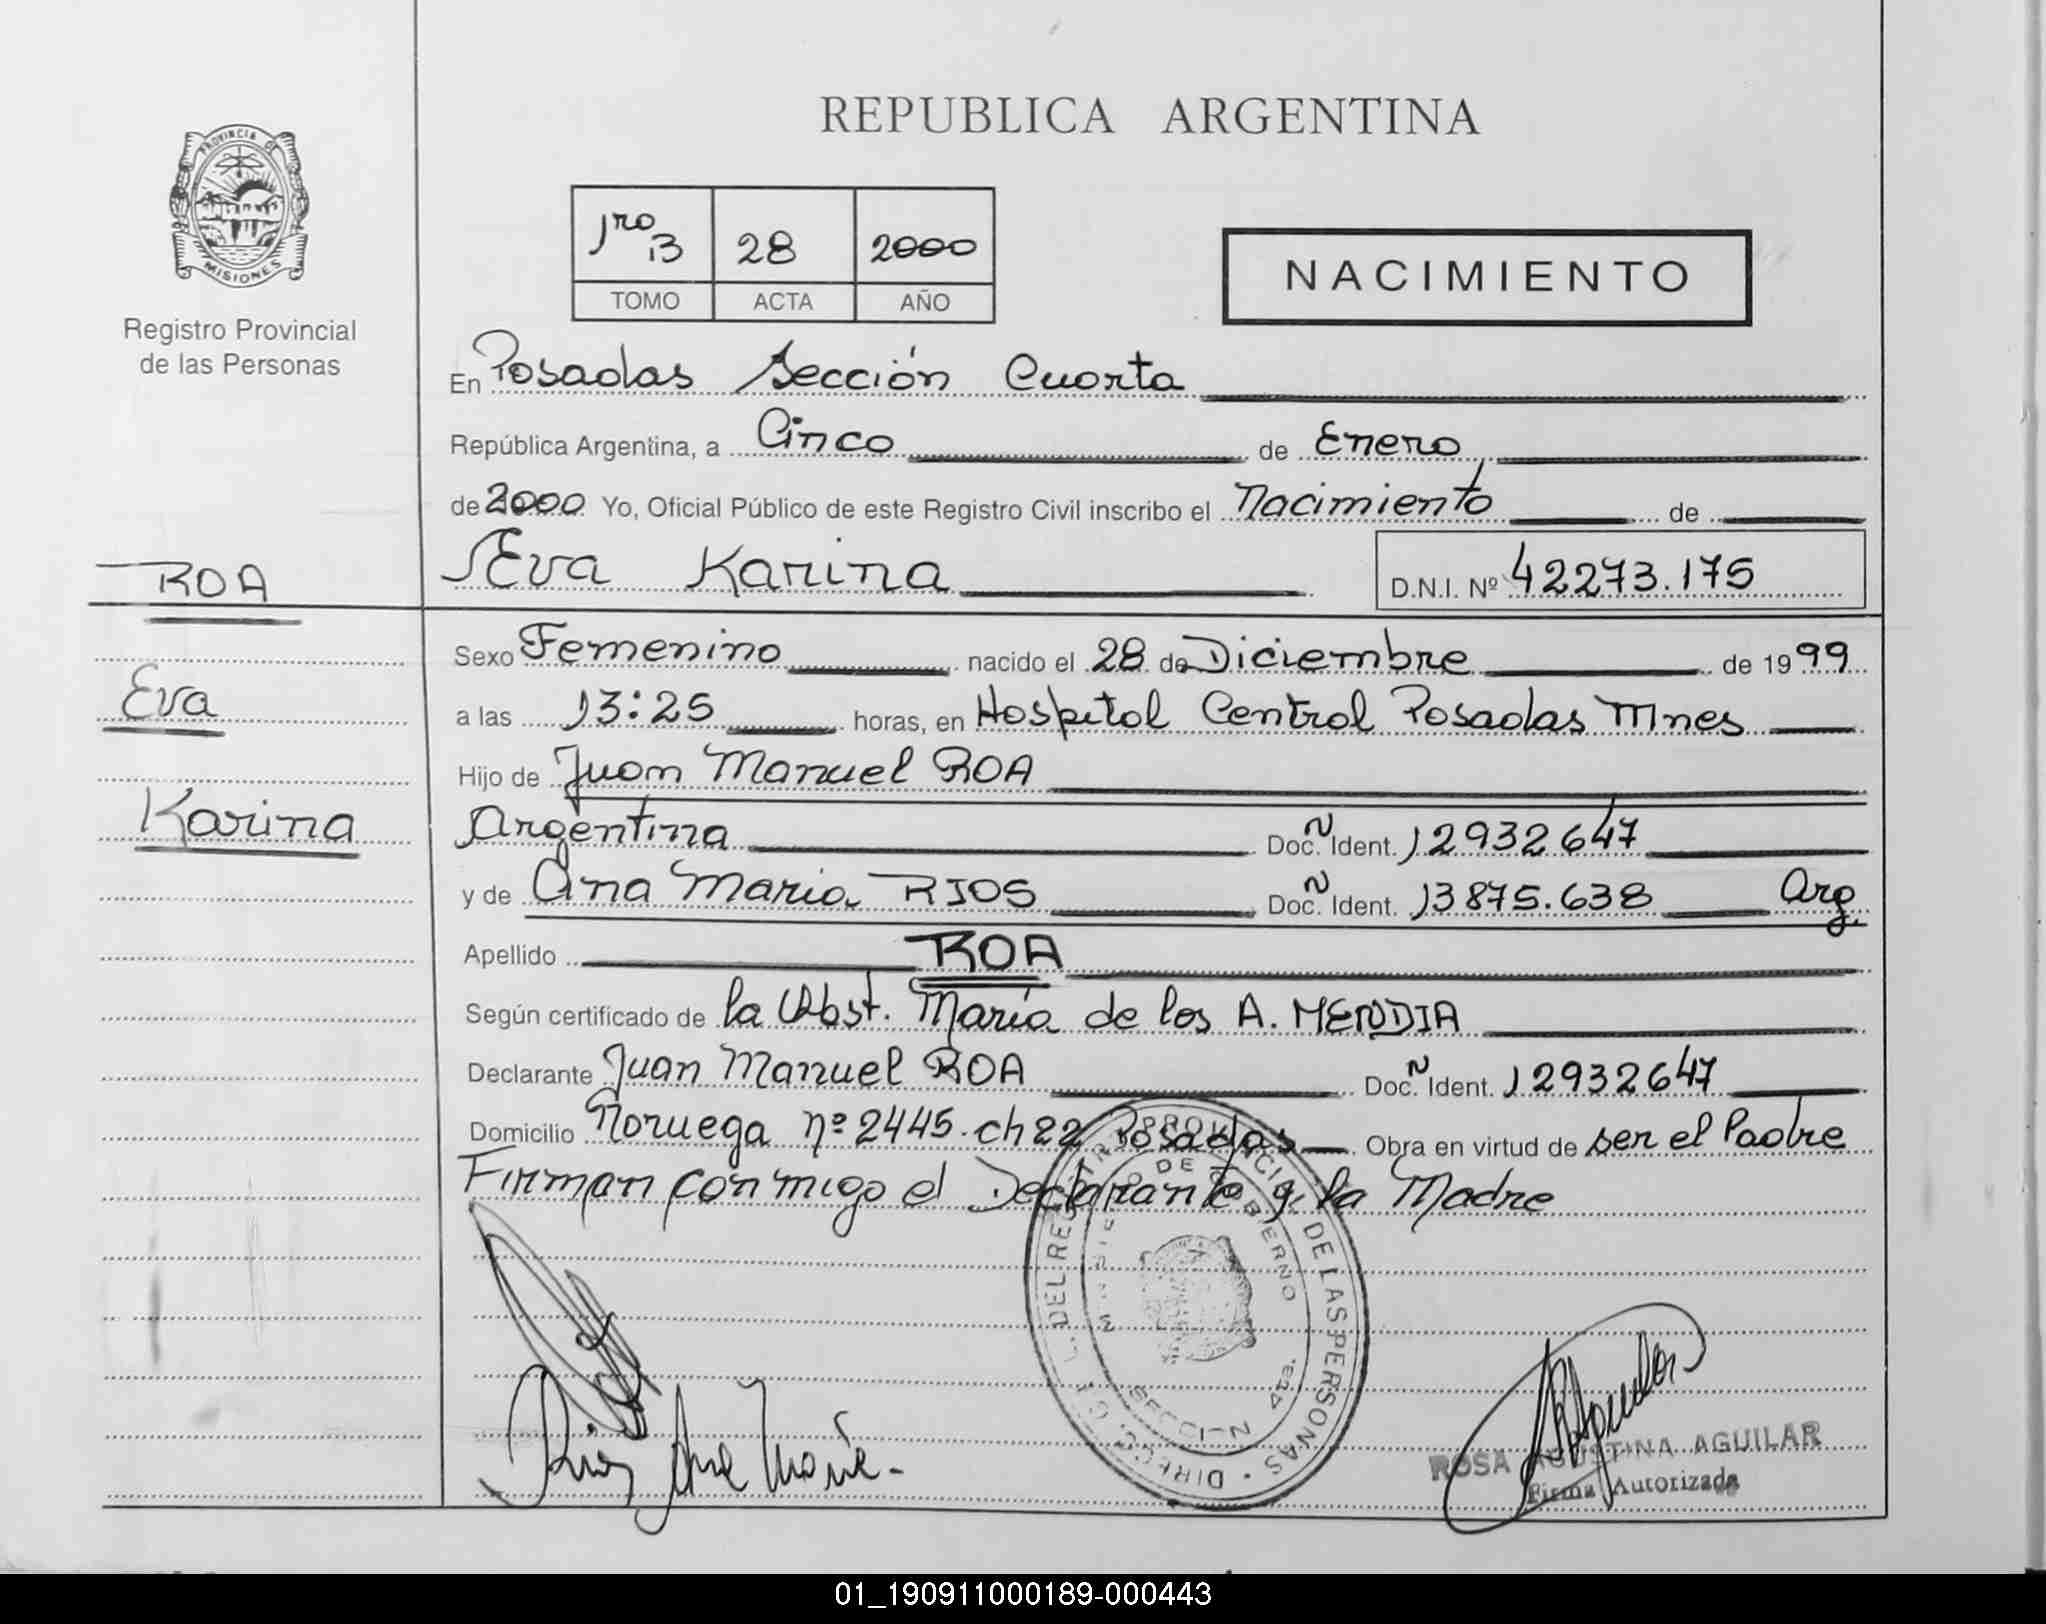 PROVINCIA DE
MISIONES
Registro Provincial
de las Personas
ROA
Eva
Karina
REPUBLICA ARGENTINA
1ro B 28 2000
TOMO ACTA AÑO
NACIMIENTO
En Posadas Sección Cuarta
República Argentina, a Cinco de Enero
de 2000 Yo, Oficial Público de este Registro Civil inscribo el Nacimiento de
Eva Karina D.N.I. Nº 42273.175
Sexo Femenino nacido el 28 de Diciembre de 1999
a las 13:25 horas, en Hospital Central Posadas Mnes
Hijo de Juan Manuel ROA
Argentina Doc. Ident. 12932647
y de Ana Maria RIOS Doc. Ident. 13875.638 Arg.
Apellido ROA
Según certificado de la Obst. María de los A. MENDIA
Declarante Juan Manuel ROA Doc. Ident. 12932647
Domicilio Noruega nº 2445. ch 22 Posadas Obra en virtud de ser el Padre
Firman conmigo el Declarante y la Madre
DIRECC. GRAL. DEL REGISTRO PROVINCIAL DE LAS PERSONAS
DE GOBIERNO
SECCION 4ta.
ROSA AGUSTINA AGUILAR
Firma Autorizada
01_190911000189-000443